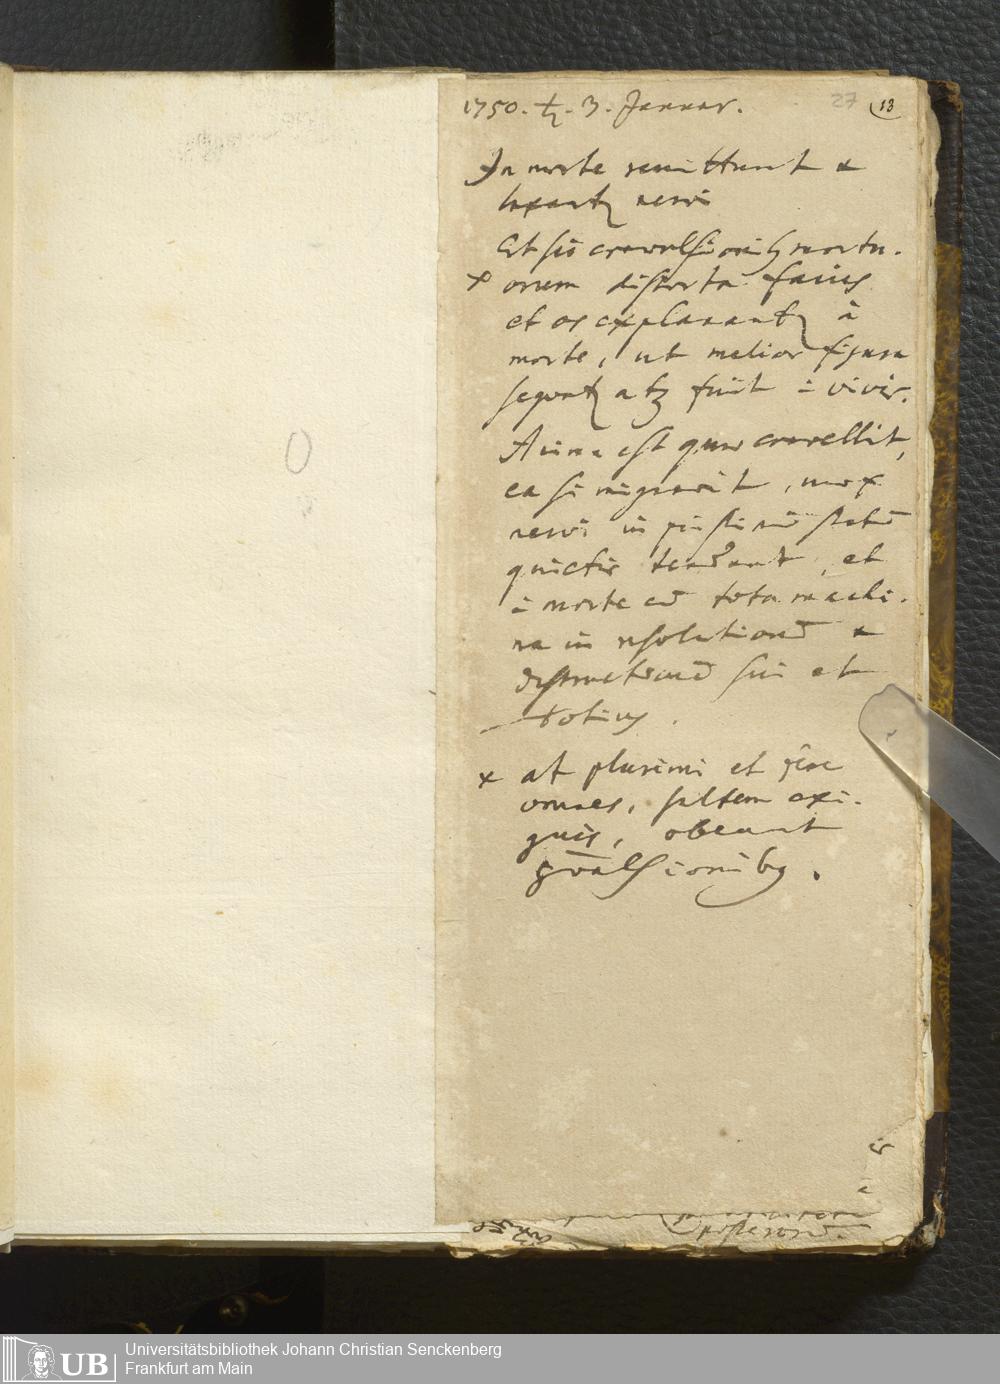 1750. ♄. 3. Januar. 27 13
In morte remittunt &
laxantꝫ nervi
Et sic convulsionibꝫ mortu-
x orum distorta facies
et os explanantꝫ à
morte, ut melior figura
sequatꝫ atꝫ fuit i vivis.
Anima est quae convellit,
ea si migravit, mox
nervi in pristinū statū
quietis tendunt, et
i morte cū tota machi-
na in resolutionē &
destructionē sui et
totius.
x at plurimi et fere
omnes, saltem exi-
guis, obeunt
gvalsionibꝫ.
O
posterorū.
Universitätsbibliothek Johann Christian Senckenberg
UB Frankfurt am Main